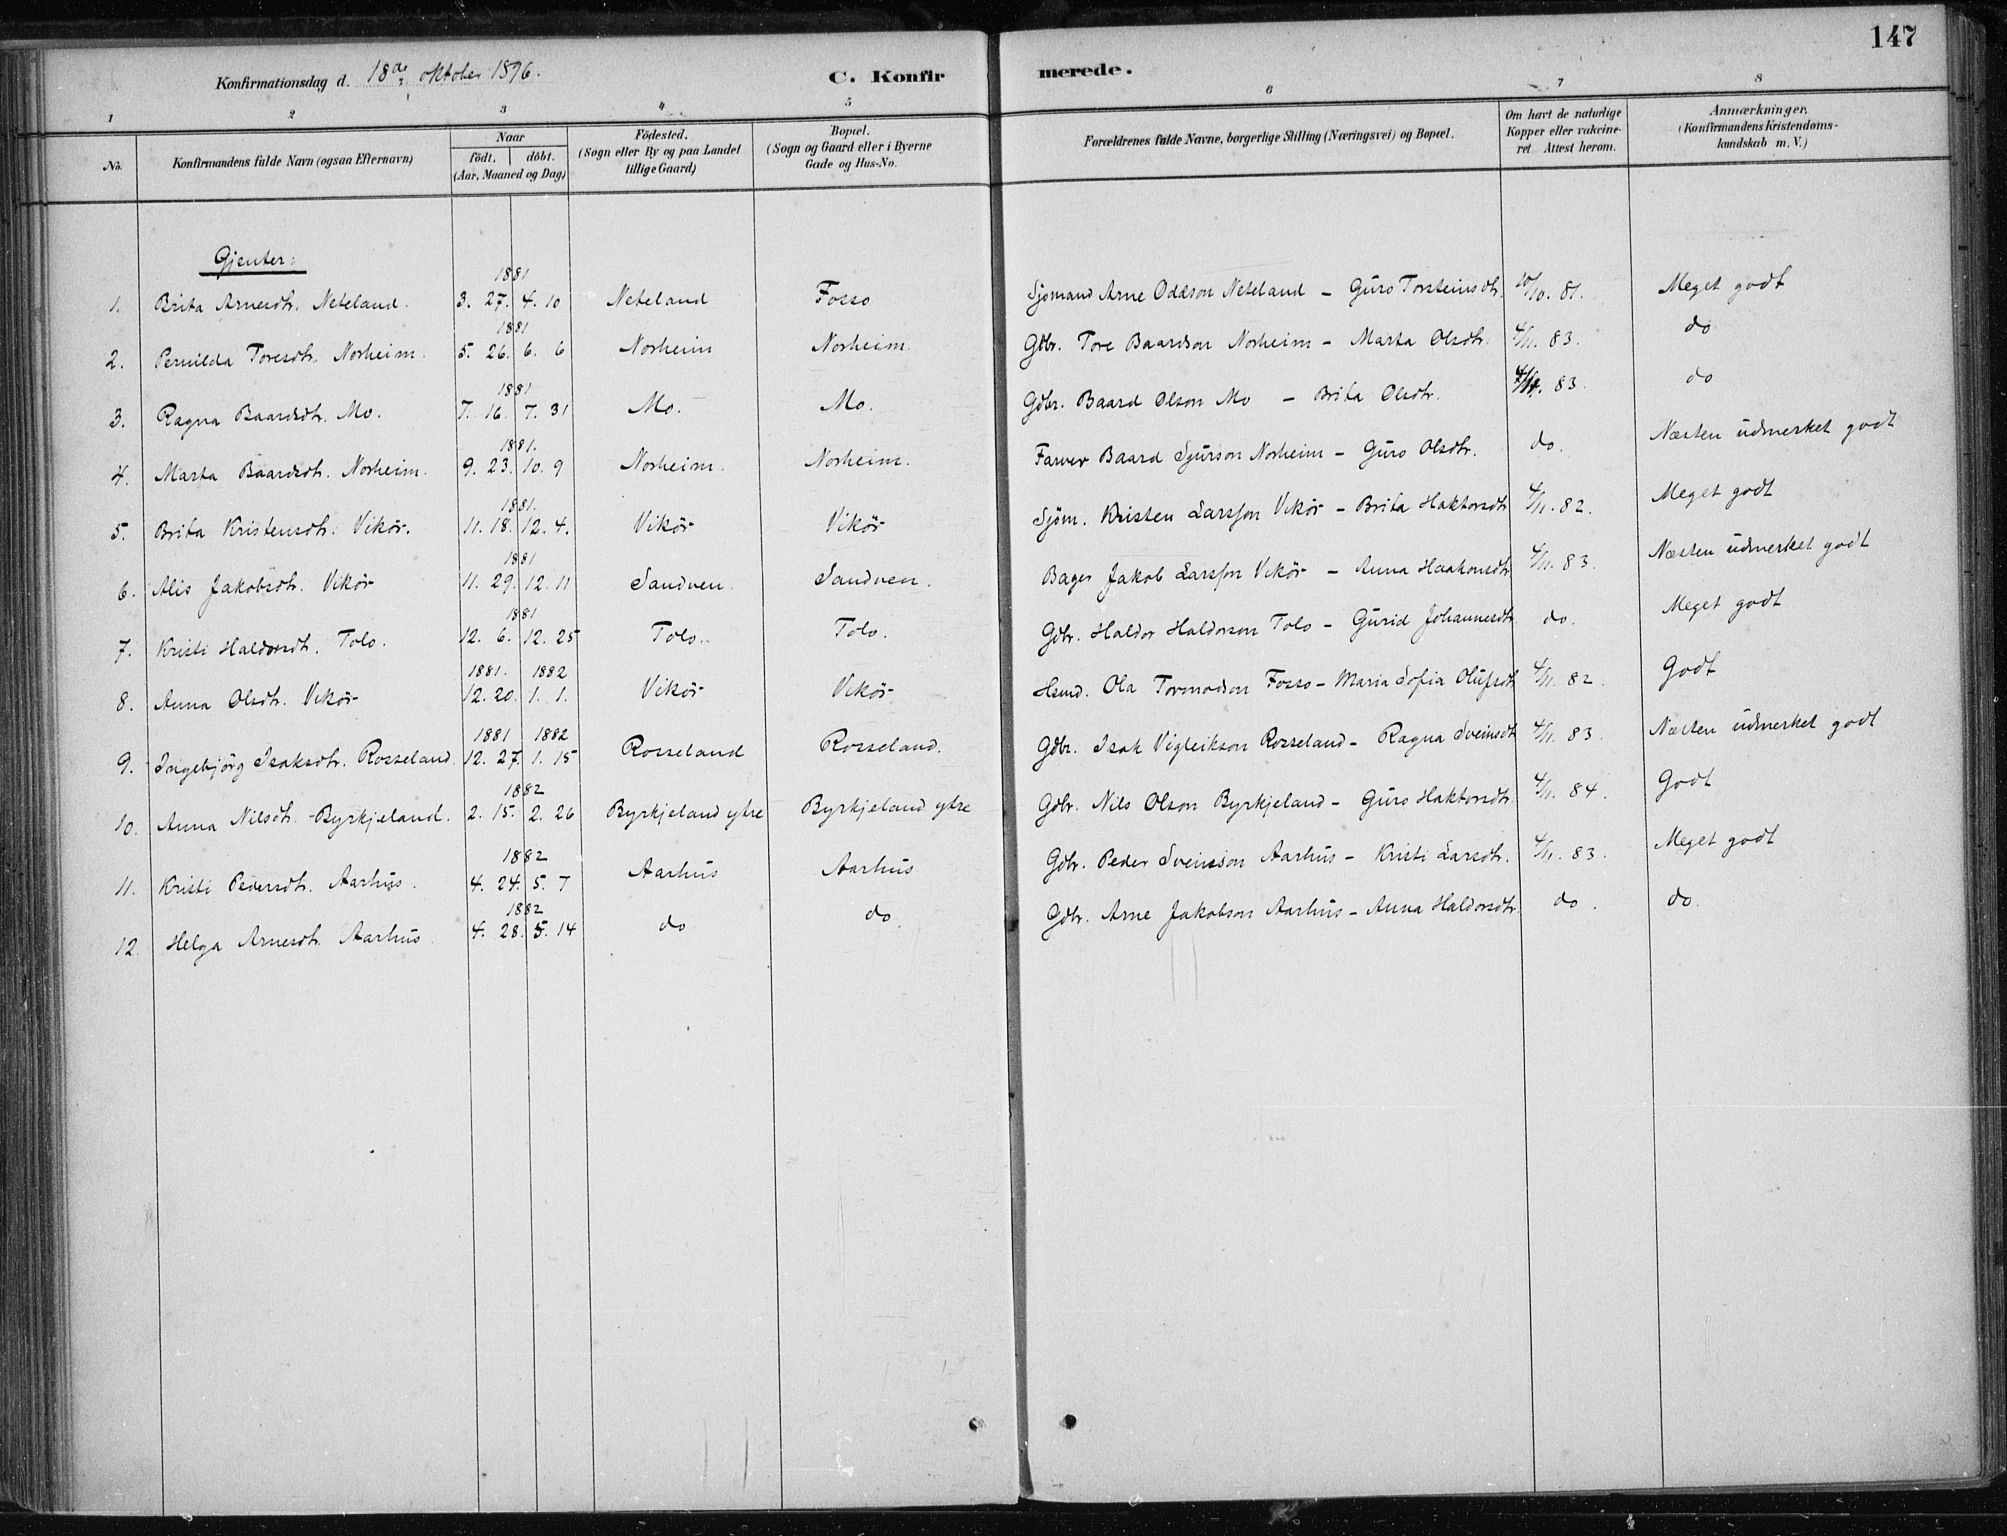 147
Konfirmationsdag d. 18de oktober 1896.
C. Konfirmerede.
1 2 3 4 5 6 7 8
No. Konfirmandens fulde Navn (ogsaa Efternavn) Naar født. døbt. (Aar, Maaned og Dag) Födested. (Sogn eller By og paa Landet tillige Gaard) Bopæl. (Sogn og Gaard eller i Byerne Gade og Hus-No. Forældrenes fulde Navne, borgerlige Stilling (Næringsvei) og Bopæl. Om havt de naturlige Kopper eller vakcineret Attest herom. Anmærkninger. (Konfirmandens Kristendomskundskab m. V.)
Gjenter:
1. Brita Arnesdtr. Neteland. 1881 3. 27. 4. 10 Neteland Fosso Sjømand Arne Oddson Neteland - Guro Torsteinsdtr. 10/10. 81. Meget godt
2. Pernilda Toresdtr. Norheim. 1881 5. 26. 6. 6 Norheim Norheim. Gdbr. Tore Baardson Norheim - Marta Olsdtr. 4/11. 83. do
3. Ragna Baardsdtr. Mo. 1881 7. 16. 7. 31 Mo. Mo. Gdbr. Baard Olson Mo - Brita Olsdtr. 4/11. 83. do
4. Marta Baardsdtr. Norheim. 1881. 9. 23. 10. 9 Norheim. Norheim. Farver Baard Sjurson Norheim - Guro Olsdtr. do. Næsten udmerket godt
5. Brita Kristensdtr. Vikör. 1881. 11. 18. 12. 4. Vikör Vikör Sjøm. Kristen Larsson Vikör - Brita Haktorsdtr 4/11. 82. Meget godt
6. Alis Jakobsdtr. Vikör 1881 11. 29. 12. 11 Sandven. Sandven. Bager Jakob Larsson Vikör - Anna Haakonsdtr 4/11. 83. Næsten udmerket godt
7. Kristi Haldorsdtr. Tolo. 1881 12. 6. 12. 25 Tolo. Tolo. Gdbr. Haldor Haldorson Tolo - Gurid Johannesdtr do. Meget godt
8. Anna Olsdtr. Vikör 1881. 1882 12. 20. 1. 1. Vikör Vikör Hsmd. Ola Tormodson Fosso - Maria Sofia Olufsdtr 4/11. 82. Godt
9. Ingebjørg Isaksdtr. Rosseland. 1881 1882 12. 27. 1. 15 Rosseland Rosseland. Gdbr. Isak Vigleikson Rosseland - Ragna Sveinsdtr 4/11. 83. Næsten udmerket godt
10. Anna Nilsdtr. Byrkjeland. 1882 2. 15. 2. 26 Byrkjeland ytre Byrkjeland ytre Gdbr. Nils Olson Byrkjeland - Guro Haktorsdtr. 4/11. 84. Godt
11. Kristi Pedersdtr. Aarhus. 1882 4. 24. 5. 7 Aarhus Aarhus Gdbr. Peder Sveinson Aarhus - Kristi Larsdtr. 4/11. 83. Meget godt
12. Helga Arnesdtr. Aarhus. 1882 4. 28. 5. 14 do do Gdbr. Arne Jakobson Aarhus - Anna Haldorsdtr. do. do.